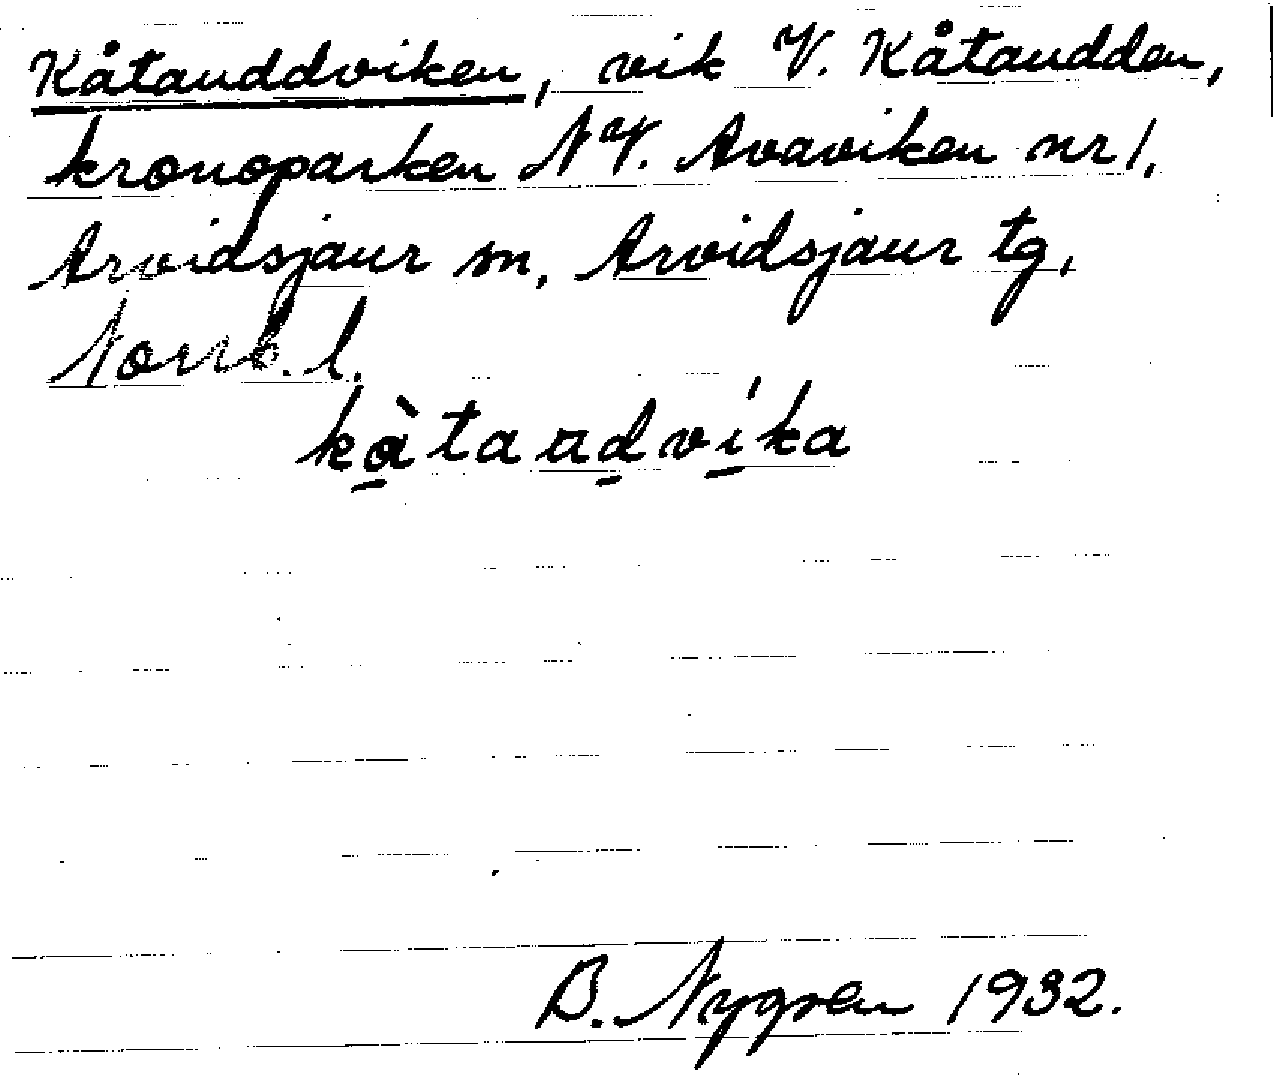 Kåtauddviken, vik V. Kåtaudden,
kronoparken NV. Avaviken nr 1.
Arvidsjaur sn, Arvidsjaur tg,
Norrb. l.
kå̀taudvíka
B. Nygren 1932.